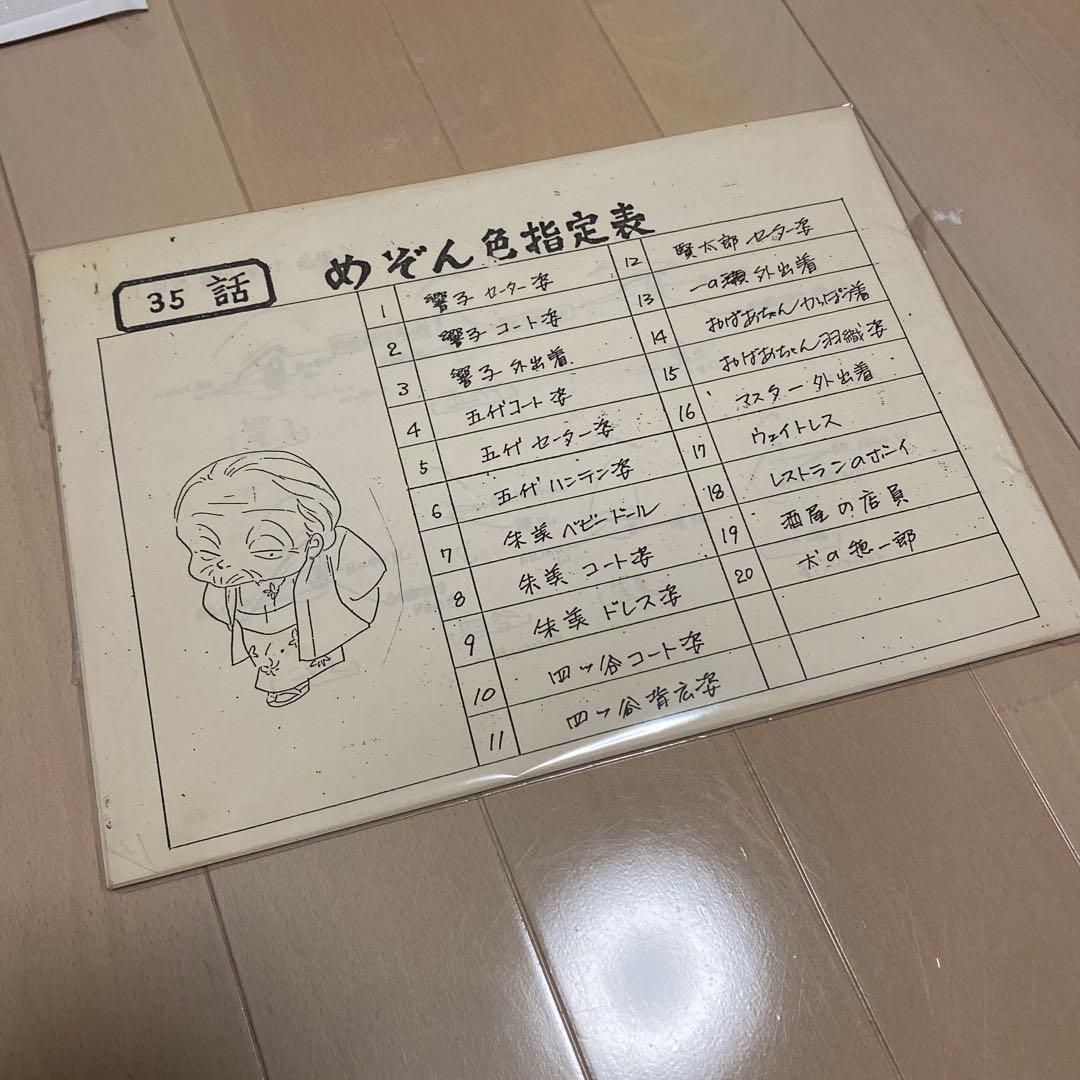 めぞん色指定表
35 話
1 響子 セーター姿
2 響子 コート姿
3 響子 外出着
4 五代コート姿
5 五代 セーター姿
6 五代 ハンテン姿
7 朱美 ベビードール
8 朱美 コート姿
9 朱美 ドレス姿
10 四ッ谷コート姿
11 四ッ谷背広姿
12 賢太郎 セーター姿
13 一の瀬外出着
14 おばあちゃん かっぽう着
15 おばあちゃん羽織姿
16 マスター 外出着
17 ウェイトレス
18 レストランのボーイ
19 酒屋の店員
20 犬の惣一郎